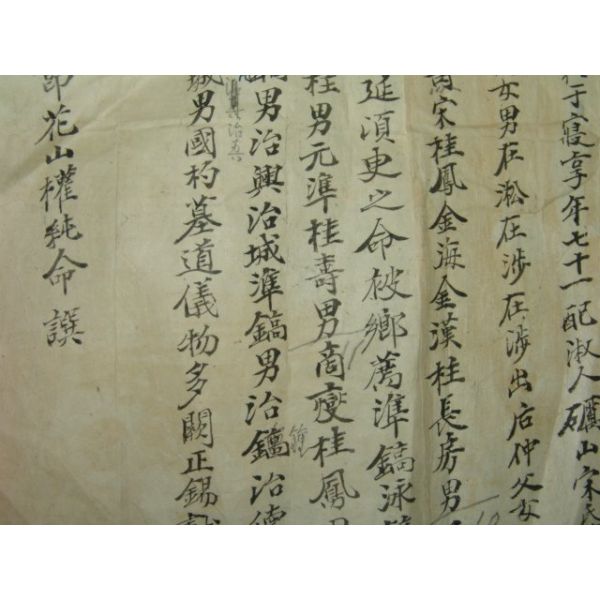 于寢享年七十一配淑人礪山宋氏
女男在淞在涉在涉出后仲父女
宋桂鳳金海金漢桂長房男
延湏更之命被鄉薦準鎬泳
桂男元準桂壽男商燮桂鳳
男治興治城準鎬男治鑰治德
鐘
治喜
城男國杓墓道儀物多闕正錫
花山權純命譔